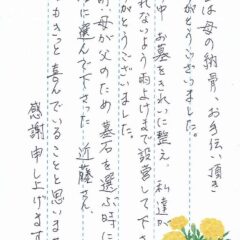 は母の納骨、お手伝い頂き
がとうございました。
中 お墓をきれいに整え、私達が
れないよう雨よけまで設営して下さ
がとうございました。
母が父のため墓石を選ぶ時に
に選んで下さった 近藤さん、
もきっと喜んでいることと思います
感謝申し上げます